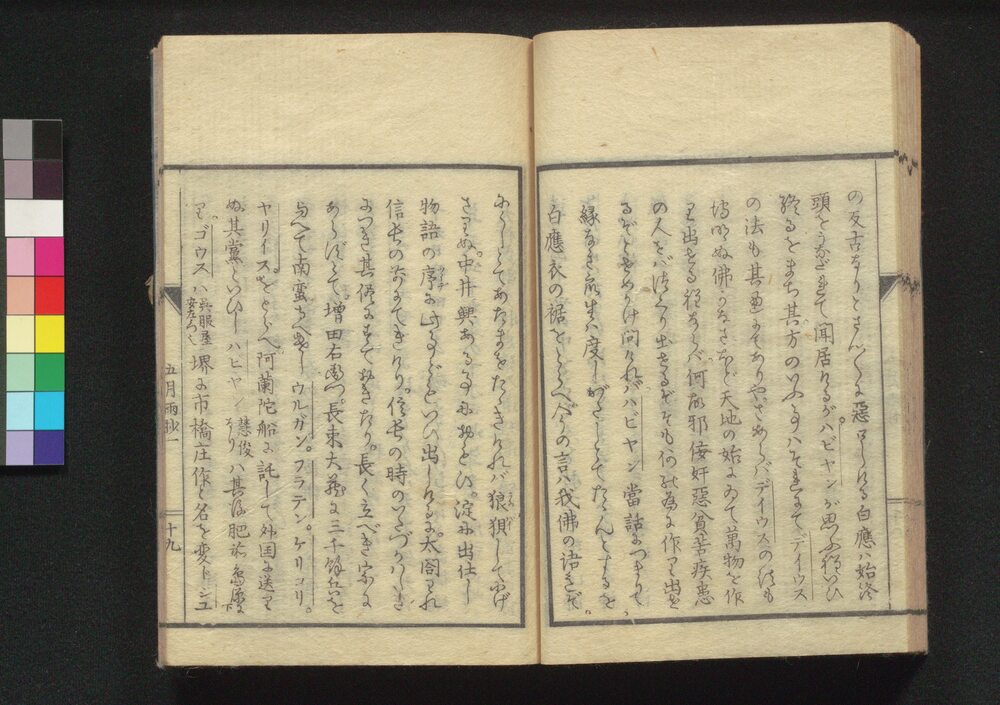 の反古なりとさん〴〵に惡口しける白應ハ始終
頭をうなだれて聞居けるがハビヤンが思ふ程いひ
終るをまち其方のいふ事ハそれまでデイウス
の法も其通りにてありやさあらバデイウスの法も
佛のなきほど天地の始にゐて萬物を作
り出せる程ならバ何故邪佞奸惡貧苦疾患
の人をバ造り出せるぞそも何の為に作り出せ
るぞとせめかけ問けれバハビヤン當話につまりて
縁なき衆生ハ度しがたしとてたゝんとするを
白應衣の裾をとらへ今の言ハ我佛の語也ぞ
にくしとてあたまをたゝきけれバ狼狽してにげ
さりぬ。中井興ある事におもひ。淀に出仕し
物語の序に此事などいひ出しけるに。太閤われ
信長のなすてきけり。信長の時のいたづかハしき
につき其儘にすておきたり。長く立べき宗に
あらずとて。増田右衛門。長束大藏に三千餘兵を
与へて南蛮寺へ遣し ウルガン。フラテン。ケリコリ。
ヤリイスをとらへ。阿蘭陀船に託して外国に送り
ぬ其黨といひしハヒヤン 慧俊なり ハ其後肥前
り。ゴウスハ 呉服屋安左衛門也 堺に市橋庄作と名を変トシユ
五月雨抄一 十九